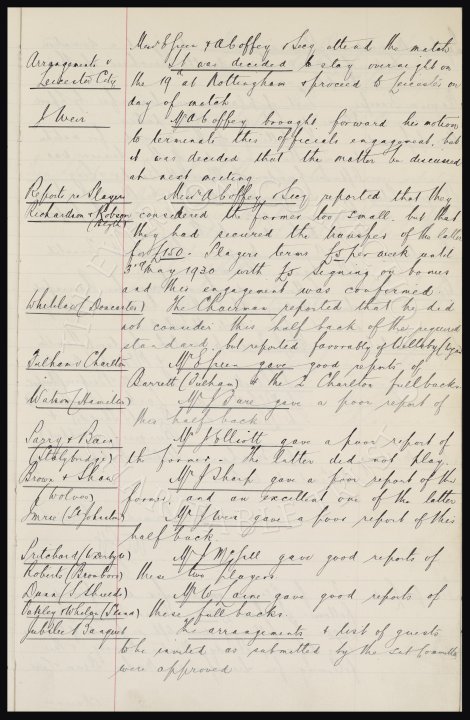 Messrs E Green & A Coffey & Secy attend the match
Arrangements v It was decided to stay overnight on
Leicester City the 19th at Nottingham & proceed to Leicester on
day of match
J Weir Mr A Coffey brought forward his motion
to terminate this officials engagement, but
it was decided that the matter be discussed
at next meeting
Reports re Players Messrs A Coffey & Secy reported that they
Richardson & Robson considered the former too small, but that
(Blyth) they had secured the transfer of the latter
for £150. Players terms £5 per week until
3rd May 1930 with £5 signing on bonus
and this engagement was confirmed.
Whitelaw (Doncaster) The Chairman reported that he did
not consider this half back of the required
standard, but reported favorably of
Fulham v Charlton Mr E Green gave good reports of
Barrett (Fulham) & the 2 Charlton full backs
Watson (Hamilton) Mr J Dare gave a poor report of
this half back
Parry & Bain Mr J Elliott gave a poor report of
(Stalybridge) the former. The latter did not play.
Brown & Shaw Mr J Sharp gave a poor report of the
(Wolves) former, and an excellent one of the latter
Imrie (St Johnstone) Mr J Weir gave a poor report of this
half back
Pritchard (Wderbys) Mr J McGill gave good reports of
Roberts (Bromboro) these two players
Dunn (S Shields) Mr W gave good reports of
Oakley & Whelan (Sland) these full backs.
Jubilee Banquet The arrangements & list of guests
to be invited as submitted by the sub Committee
were approved